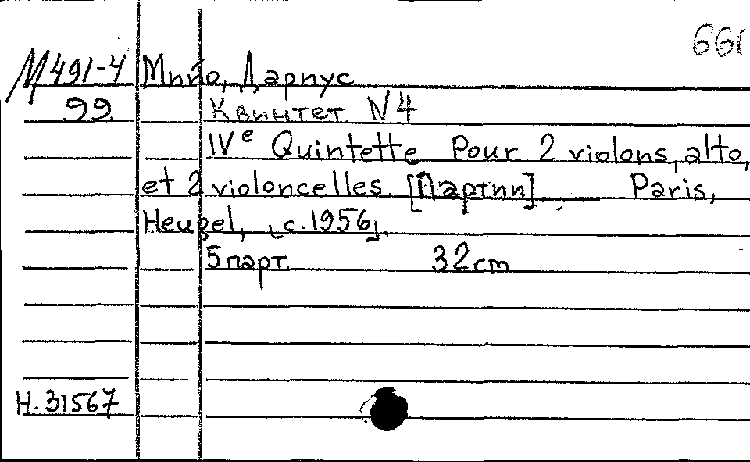 661
М491-4 Мийо, Дариус
99 Квинтет N4
IVe Quintette Pour 2 violons, alto,
et 2 violoncelles. [Партии] Paris,
Heugel, [c.1956].
5 парт. 32 cm
Н.31567